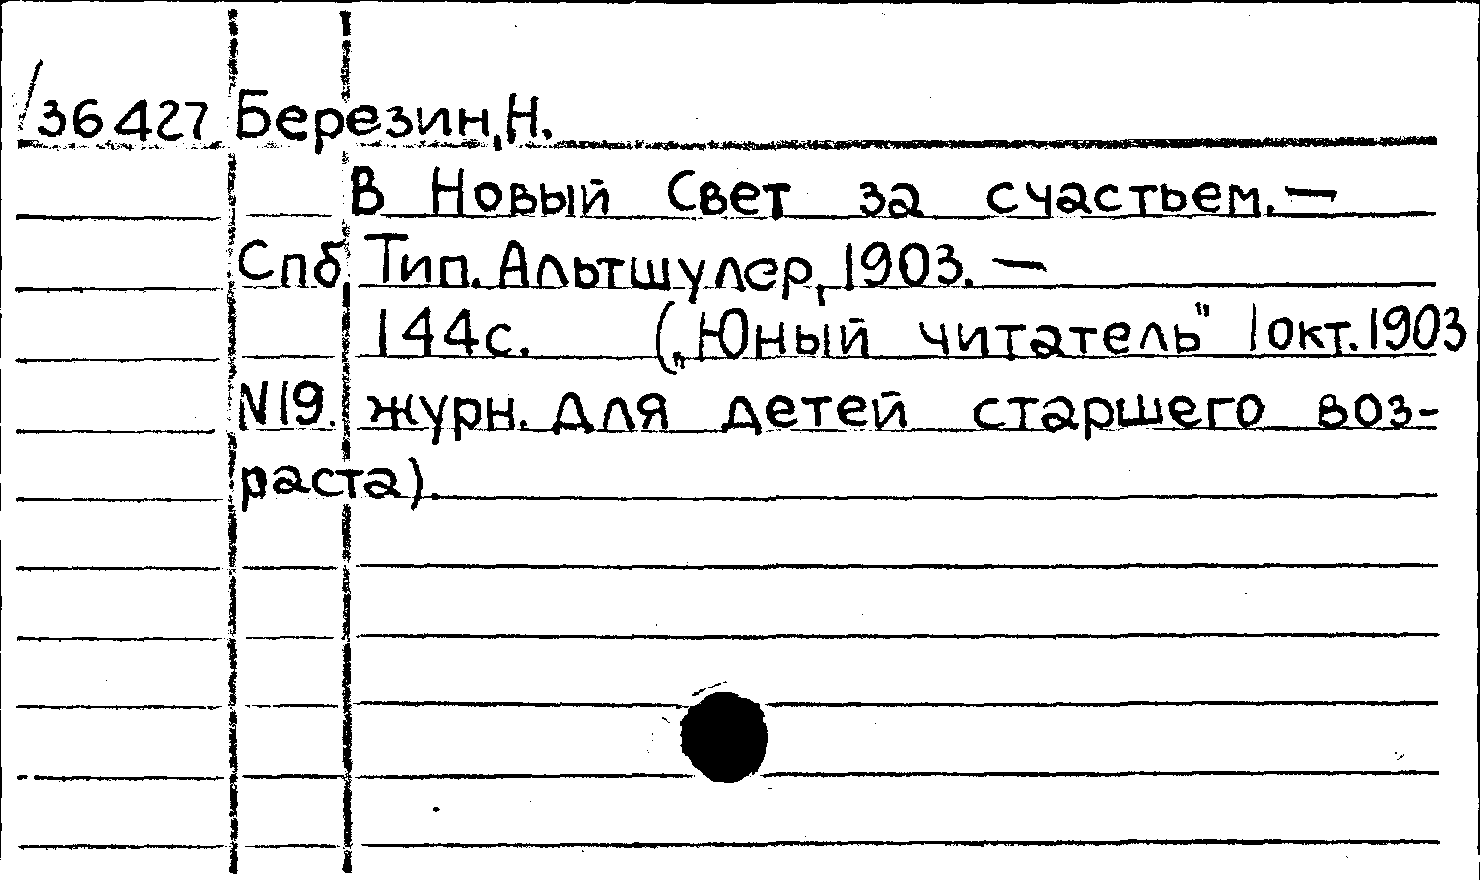 /36427 Березин, Н.
В Новый Свет за счастьем.—
Спб. Тип. Альтшулер, 1903.—
144с. („Юный читатель" 1 окт. 1903
N19. журн. для детей старшего воз-
раста).